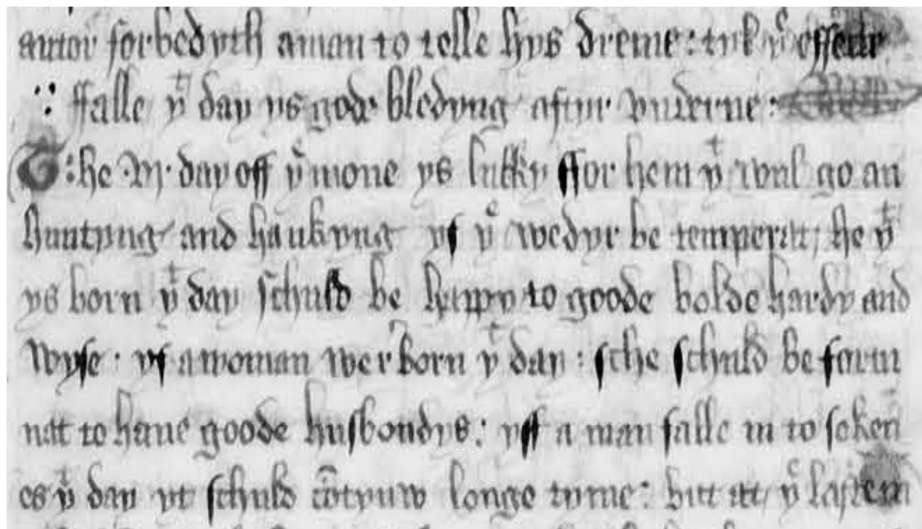 autor forbedyth a man to telle hys dreme : tyl yͤ effecte
∵ ffalle yᵗ day ys gode bledyng aftyr vnderne :
The .vj. day off yͤ mone ys lukky ffor hem yᵗ wul go an
huntyng and haukyng yf yͤ wedyr be temperat, he yᵗ
ys born yᵗ day schuld be happy to goode bolde hardy and
wyse : yf a woman wer born yᵗ day : sche schuld be fortu
nat to haue goode husbondys : yff a man falle in to seken
es yᵗ day yt schuld cōtynuw longe tyme : but at yͤ last